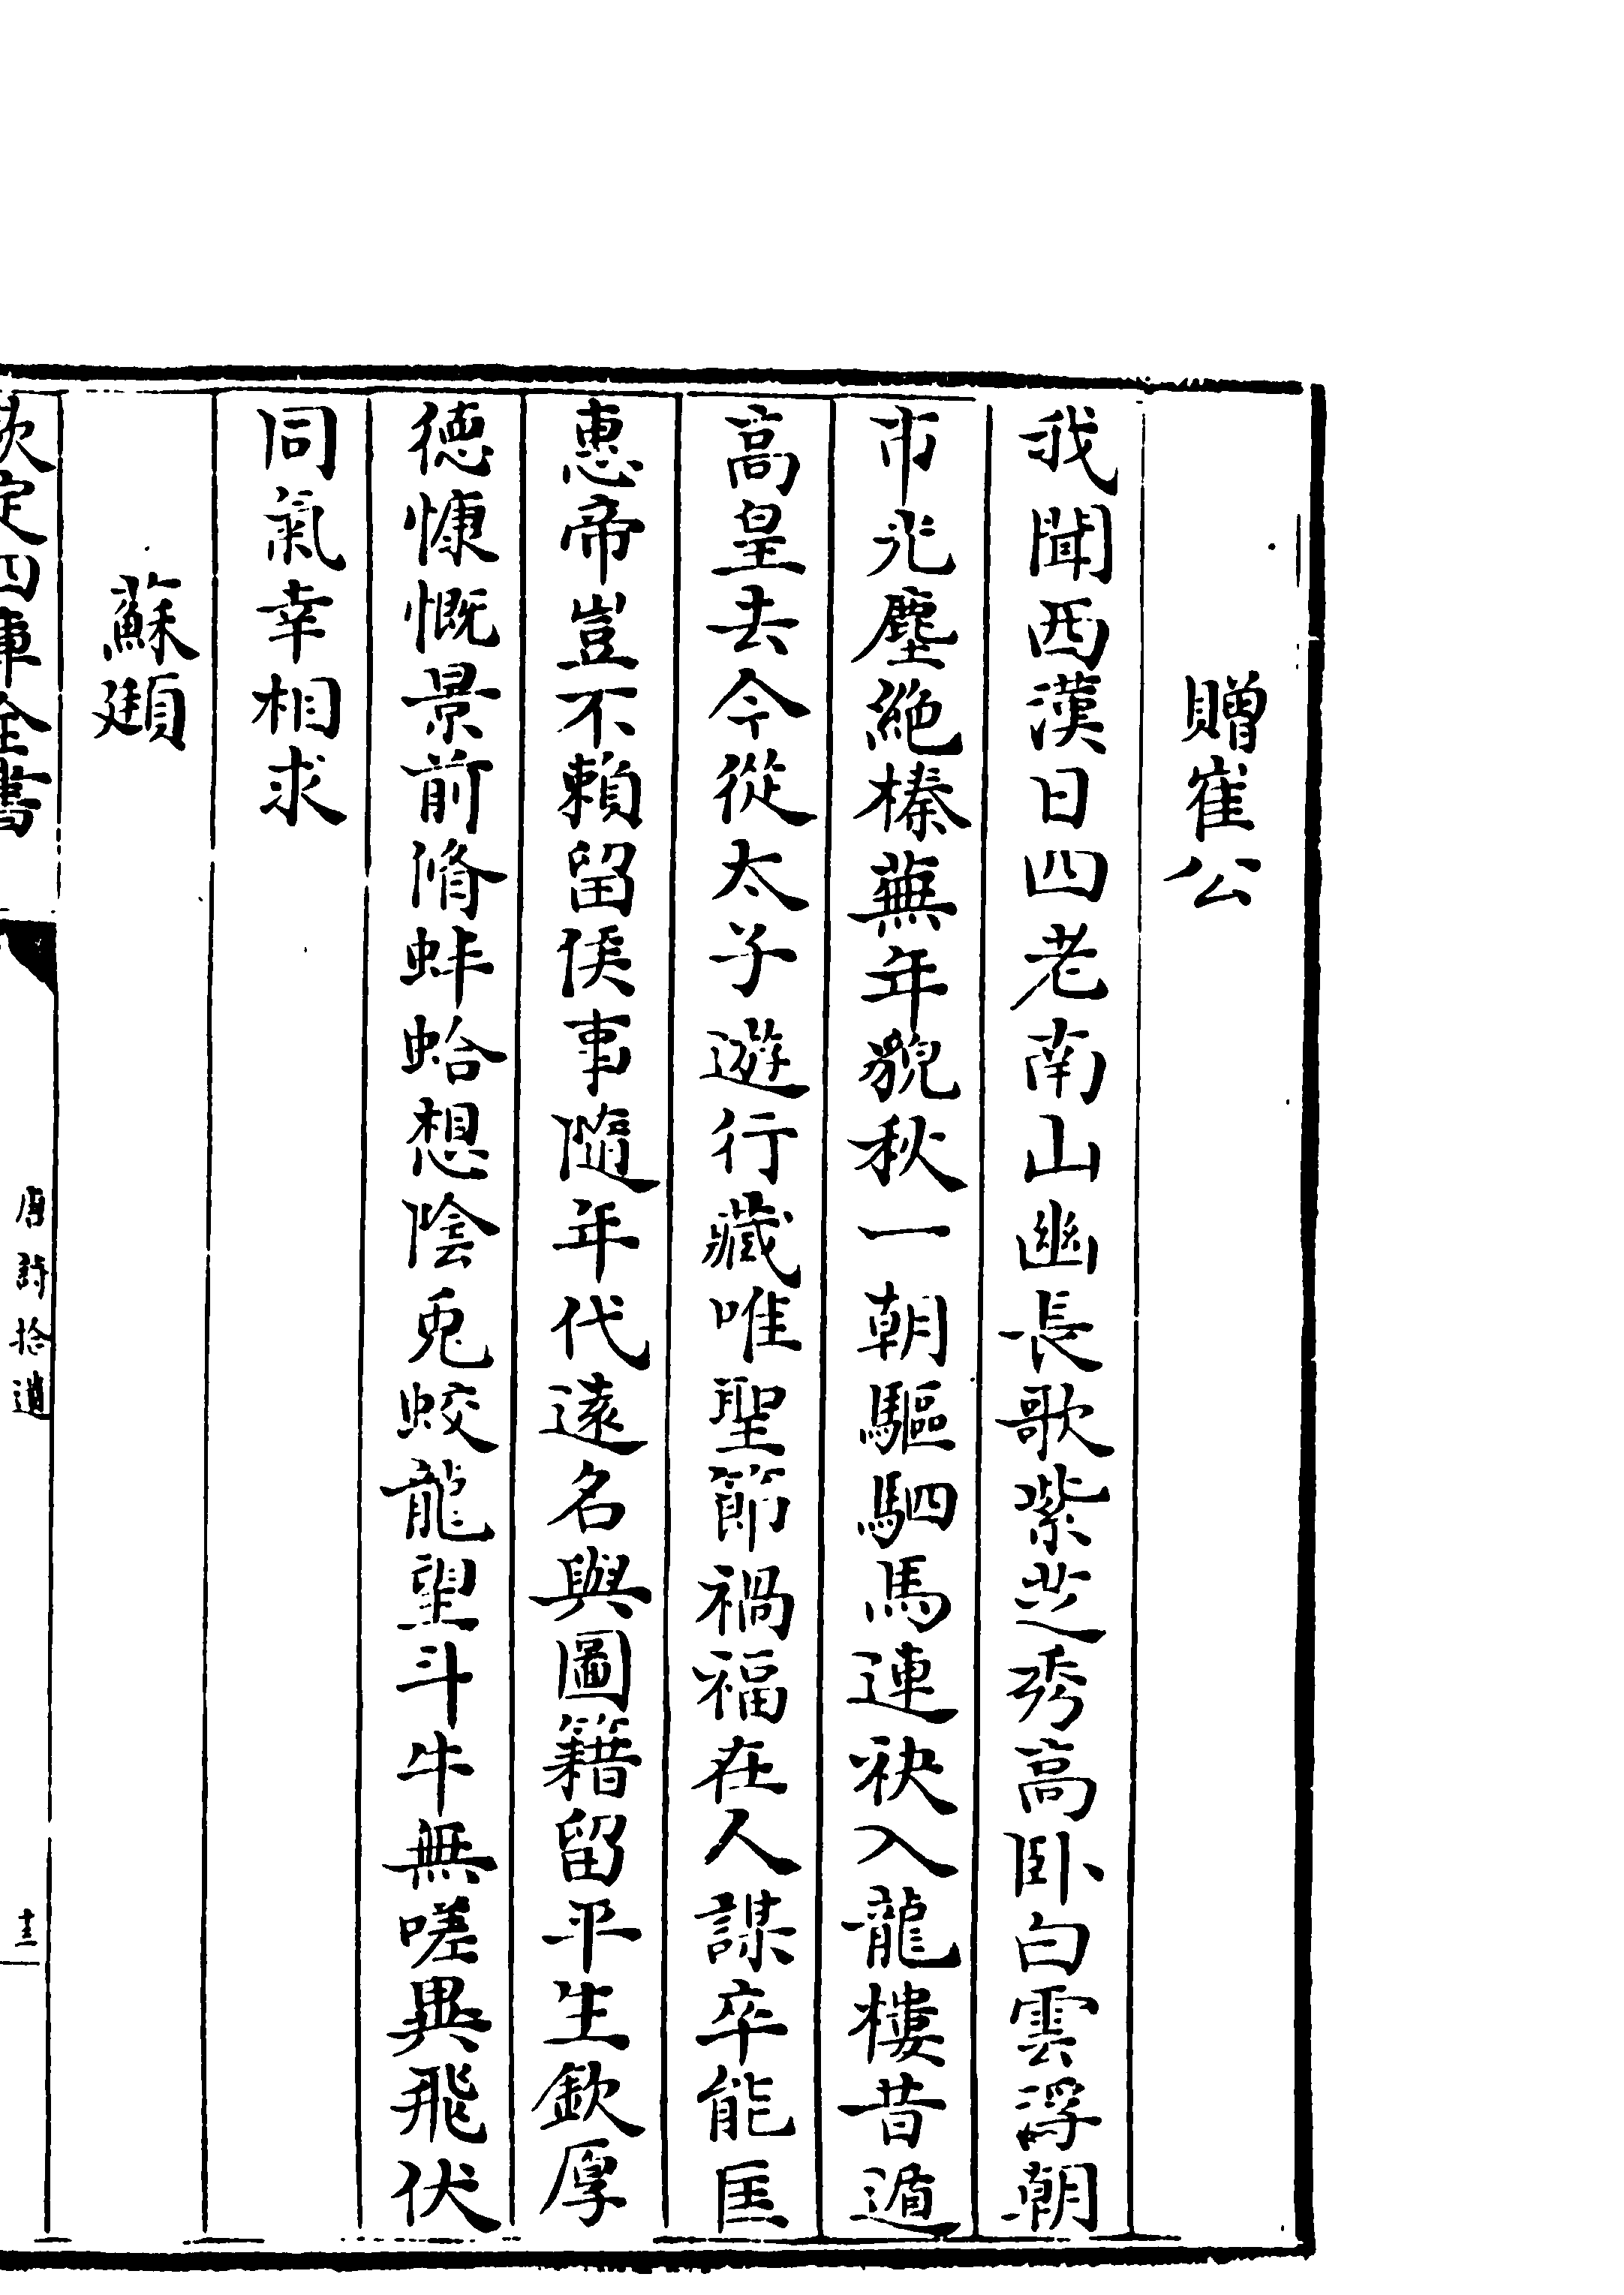 贈崔公
我聞西漢日四老南山幽長歌紫芝秀高卧白雲浮朝
市光塵絶榛蕪年貌秋一朝驅駟馬連袂入龍樓昔遁
高皇去今從太子遊行藏唯聖節禍福在人謀卒能匡
惠帝豈不賴留侯事隨年代逺名與圖籍留平生欽厚
徳慷慨景前脩蚌蛤想陰兎蛟龍望斗牛無嗟異飛伏
同氣幸相求
蘇頲
欽定四庫全書
唐詩拾遺
十三